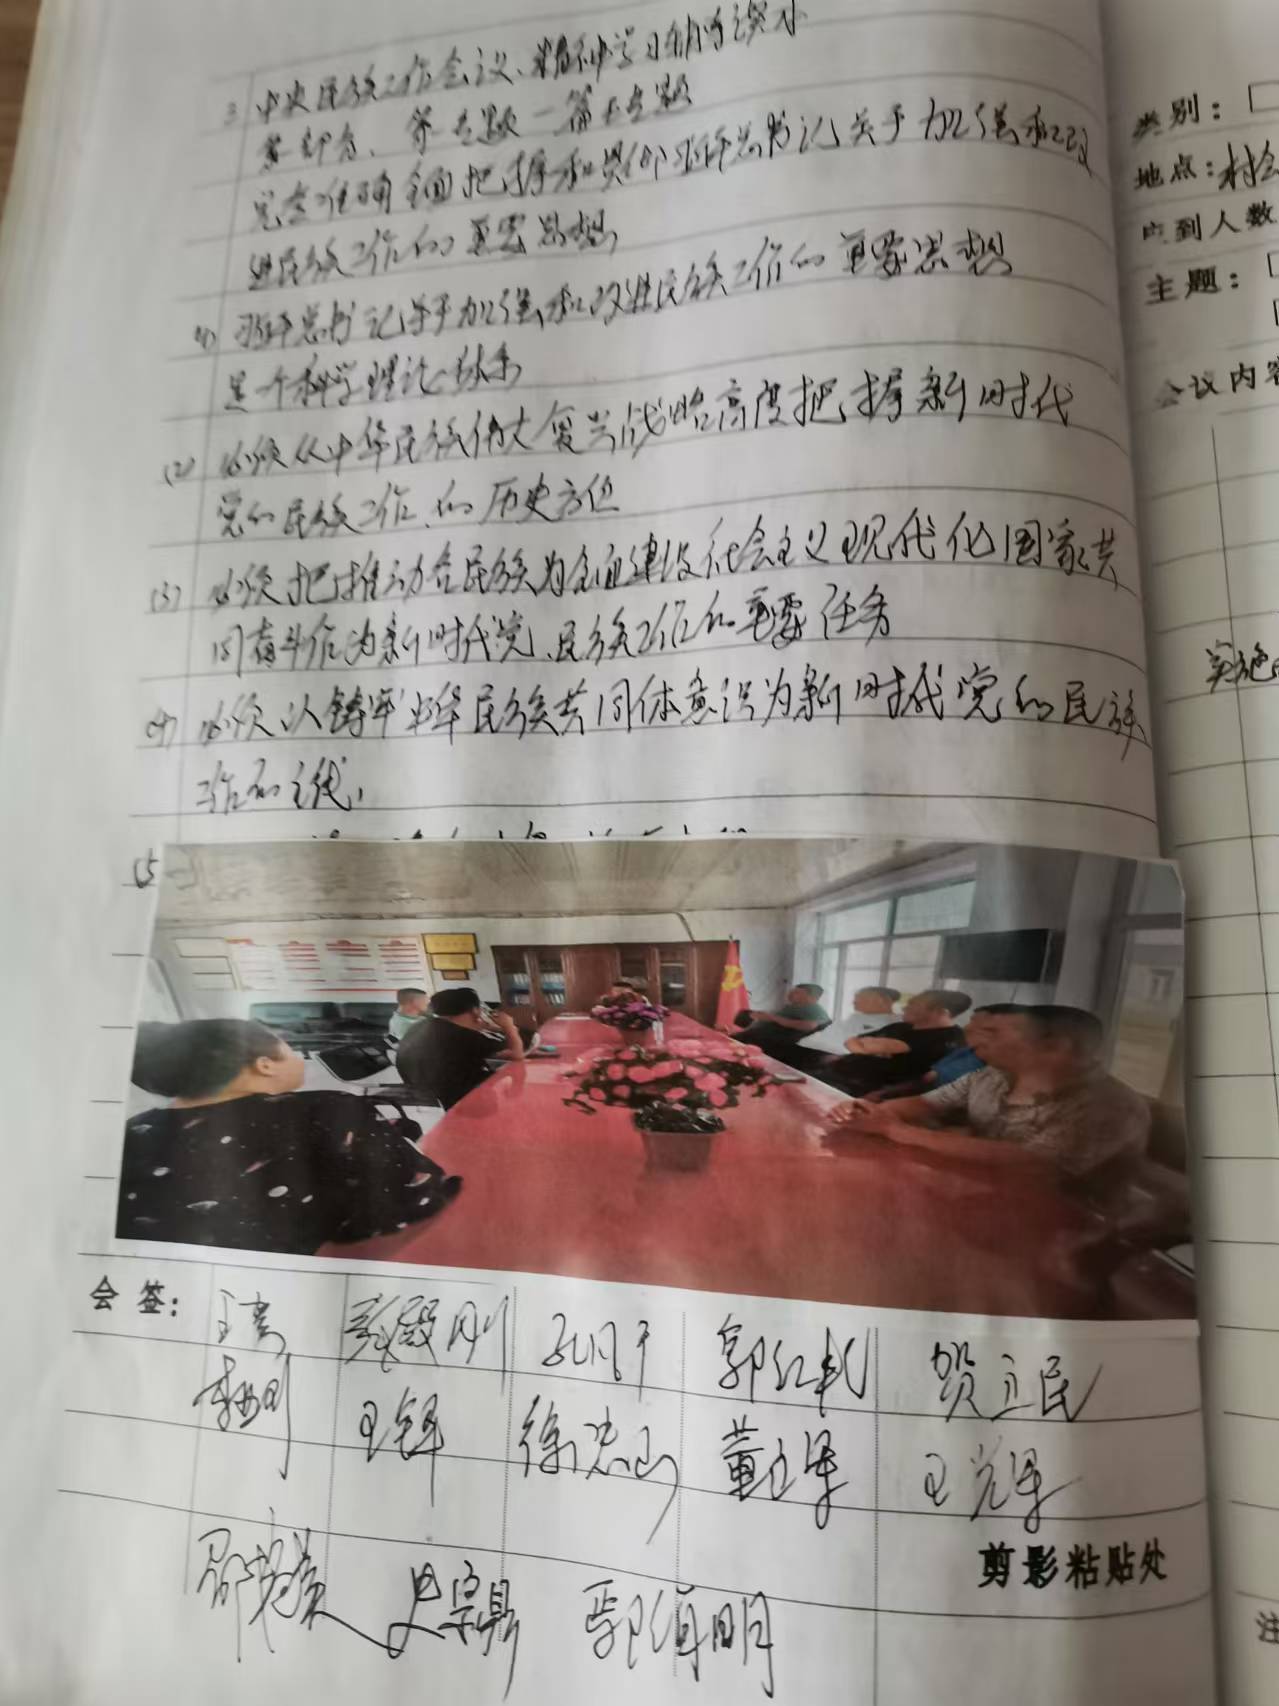 三 中央民族工作会议精神学习辅导读本
第 部分、第 专题 一篇 专题
完整准确全面把握和贯彻习近平总书记关于加强和改
进民族工作的重要思想
(1) 习近平总书记关于加强和改进民族工作的重要思想
是一个科学理论体系
(2) 必须从中华民族伟大复兴战略高度把握新时代
党的民族工作的历史方位
(3) 必须把推动各民族为全面建设社会主义现代化国家共
同奋斗作为新时代党民族工作的重要任务
(4) 必须以铸牢中华民族共同体意识为新时代党的民族
工作的主线,
(5
会签:
郭红 贺立民
王锋 徐忠山 董立军 王光军
史宗鼎 明
剪影粘贴处
类别:
地点:村会
应到人数
主题:
会议内容
实施
注